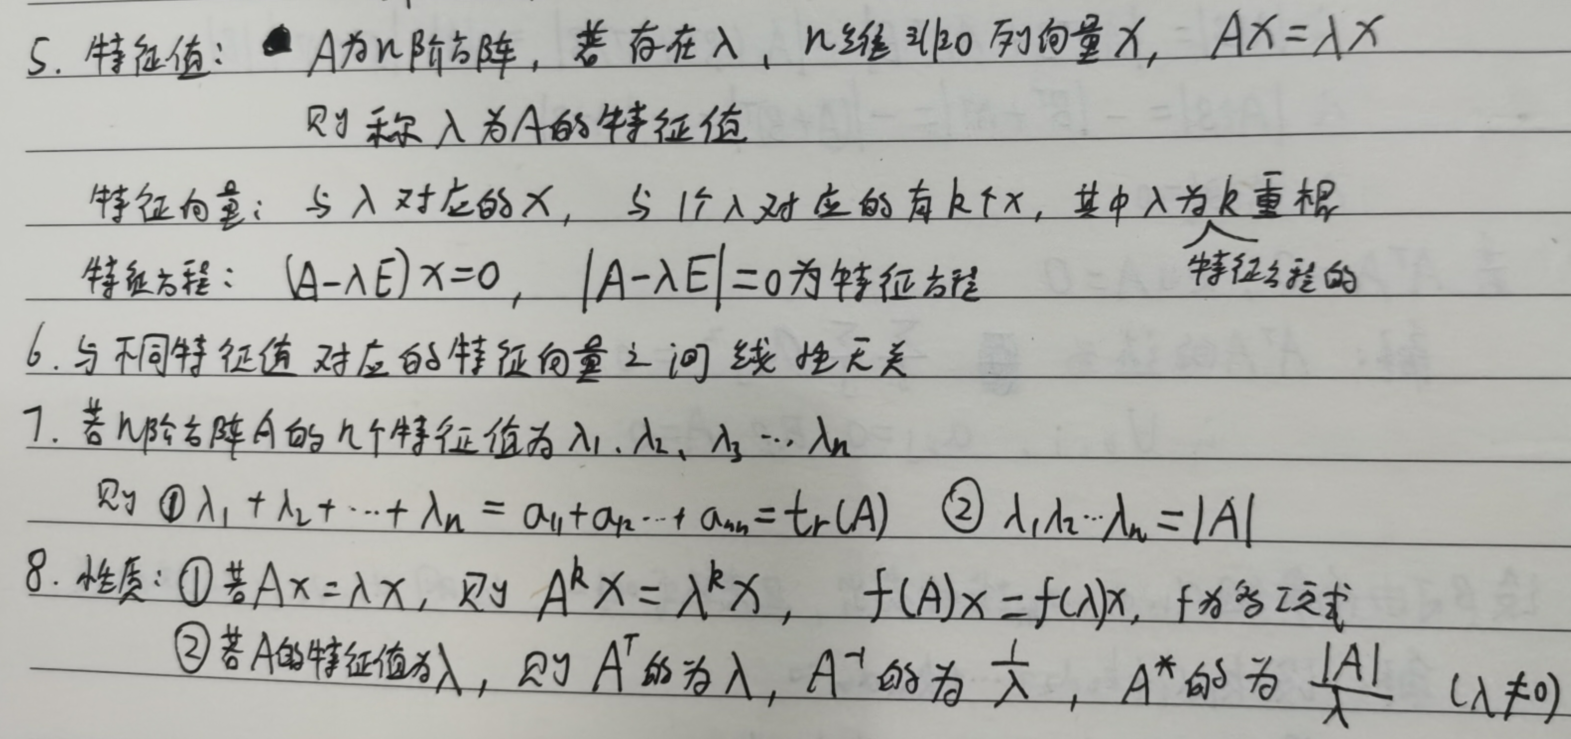 5. 特征值: A为n阶方阵, 若存在λ, n维非0列向量X, AX=λX
则称λ为A的特征值
特征向量: 与λ对应的X, 与1个λ对应的有k个x, 其中λ为k重根
特征方程的
特征方程: (A-λE)x=0, |A-λE|=0为特征方程
6. 与不同特征值对应的特征向量之间线性无关
7. 若n阶方阵A的n个特征值为λ₁、λ₂、λ₃…λₙ
则 ①λ₁+λ₂+…+λₙ=a₁₁+a₁₂…+aₙₙ=tr(A) ②λ₁λ₂…λₙ=|A|
8. 性质: ①若Ax=λx, 则Aᵏx=λᵏx, f(A)x=f(λ)x, f为多项式
②若A的特征值为λ, 则Aᵀ的为λ, A⁻¹的为1/λ, A*的为|A|/λ (λ≠0)